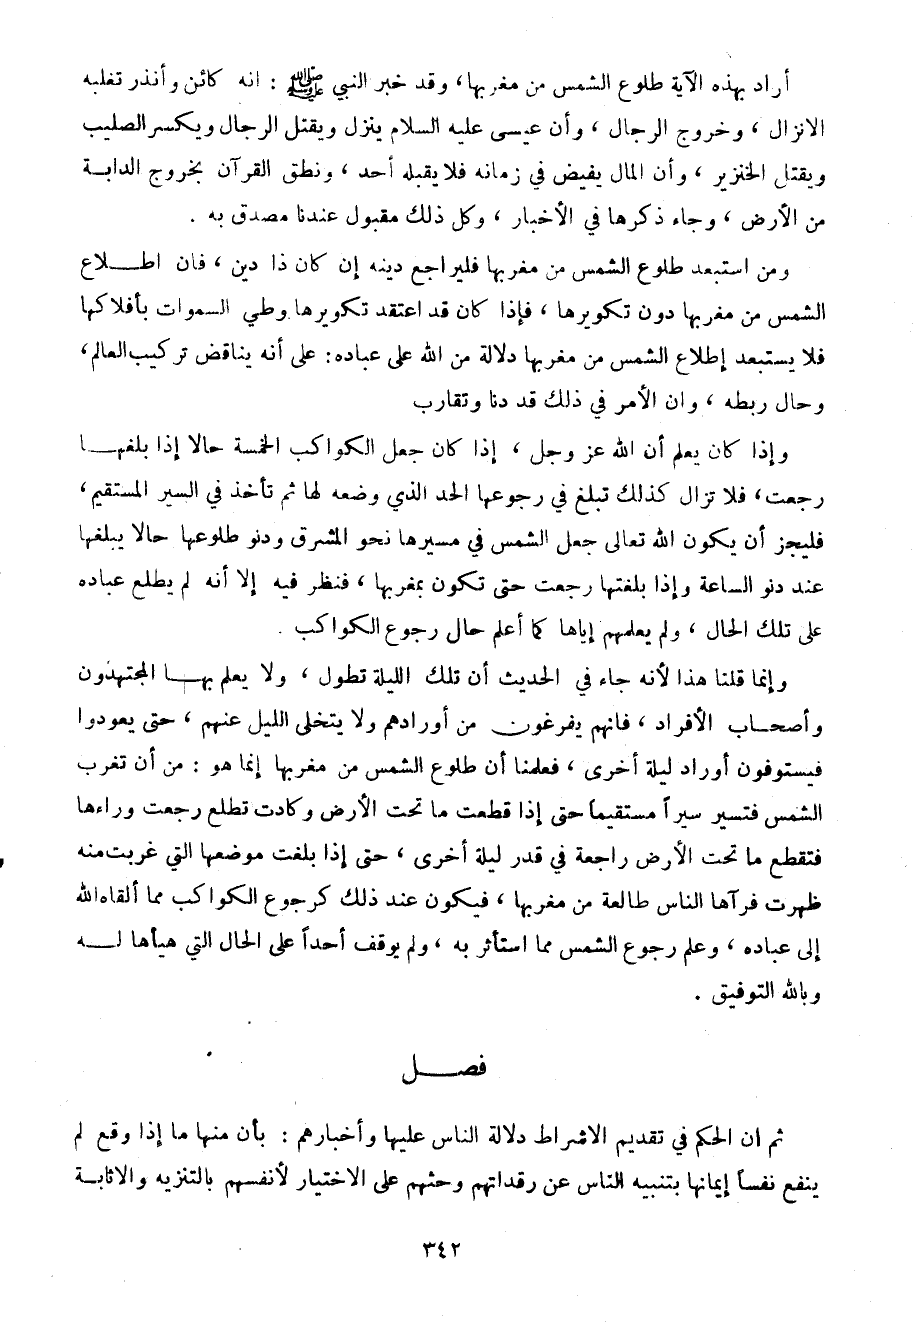 أراد بهذه الآية طلوع الشمس من مغربها، وقد خبر النبي ﷺ : انه كائن وأنذر تغلبه
الانزال ، وخروج الرجال ، وأن عيسى عليه السلام ينزل ويقتل الرجال ويكسر الصليب
ويقتل الخنزير ، وأن المال يفيض في زمانه فلا يقبله أحد ، ونطق القرآن بخروج الدابة
من الأرض ، وجاء ذكرها في الأخبار ، وكل ذلك مقبول عندنا مصدق به .
ومن استبعد طلوع الشمس من مغربها فليراجع دينه إن كان ذا دين ، فان اطلاع
الشمس من مغربها دون تكويرها ، فإذا كان قد اعتقد تكويرها وطي السموات بأفلاكها
فلا يستبعد إطلاع الشمس من مغربها دلالة من الله على عباده: على أنه يناقض تركيب العالم،
وحال ربطه ، وان الأمر في ذلك قد دنا وتقارب
وإذا كان يعلم أن الله عز وجل ، إذا كان جعل الكواكب الخمسة حالا إذا بلغتها
رجعت، فلا تزال كذلك تبلغ في رجوعها الحد الذي وضعه لها ثم تأخذ في السير المستقيم،
فليجز أن يكون الله تعالى جعل الشمس في مسيرها نحو المشرق ودنو طلوعها حالا يبلغها
عند دنو الساعة وإذا بلغتها رجعت حتى تكون بمغربها ، فنظر فيه إلا أنه لم يطلع عباده
على تلك الحال ، ولم يعلمهم إياها كما أعلم حال رجوع الكواكب .
وإنما قلنا هذا لأنه جاء في الحديث أن تلك الليلة تطول ، ولا يعلم بها المجتهدون
وأصحاب الأفراد ، فانهم يفرغون من أورادهم ولا يتخلى الليل عنهم ، حتى يعودوا
فيستوفون أوراد ليلة أخرى ، فعلمنا أن طلوع الشمس من مغربها إنما هو : من أن تغرب
الشمس فتسير سيراً مستقيماً حتى إذا قطعت ما تحت الأرض وكادت تطلع رجعت وراءها
فتقطع ما تحت الأرض راجعة في قدر ليلة أخرى ، حتى إذا بلغت موضعها التي غربت منه
ظهرت فرآها الناس طالعة من مغربها ، فيكون عند ذلك كرجوع الكواكب مما ألقاه الله
إلى عباده ، وعلم رجوع الشمس مما استأثر به ، ولم يوقف أحداً على الحال التي هيأها له
وبالله التوفيق .
فصل
ثم ان الحكم في تقديم الاشراط دلالة الناس عليها وأخبارهم : بأن منها ما إذا وقع لم
ينفع نفساً إيمانها بتنبيه الناس عن رقداتهم وحثهم على الاختيار لأنفسهم بالتنزيه والاثابة
٣٤٢